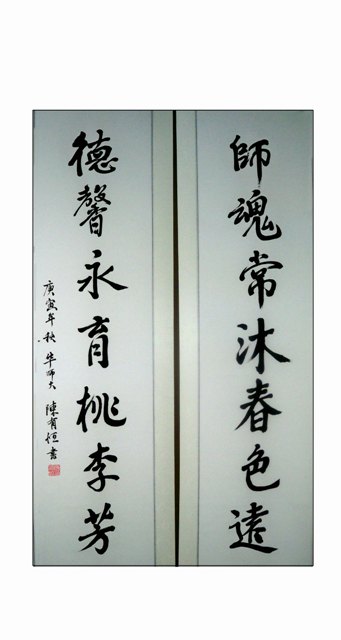 師魂常沐春色遠
德馨永育桃李芳
庚寅年秋 华师大 陳有恒書